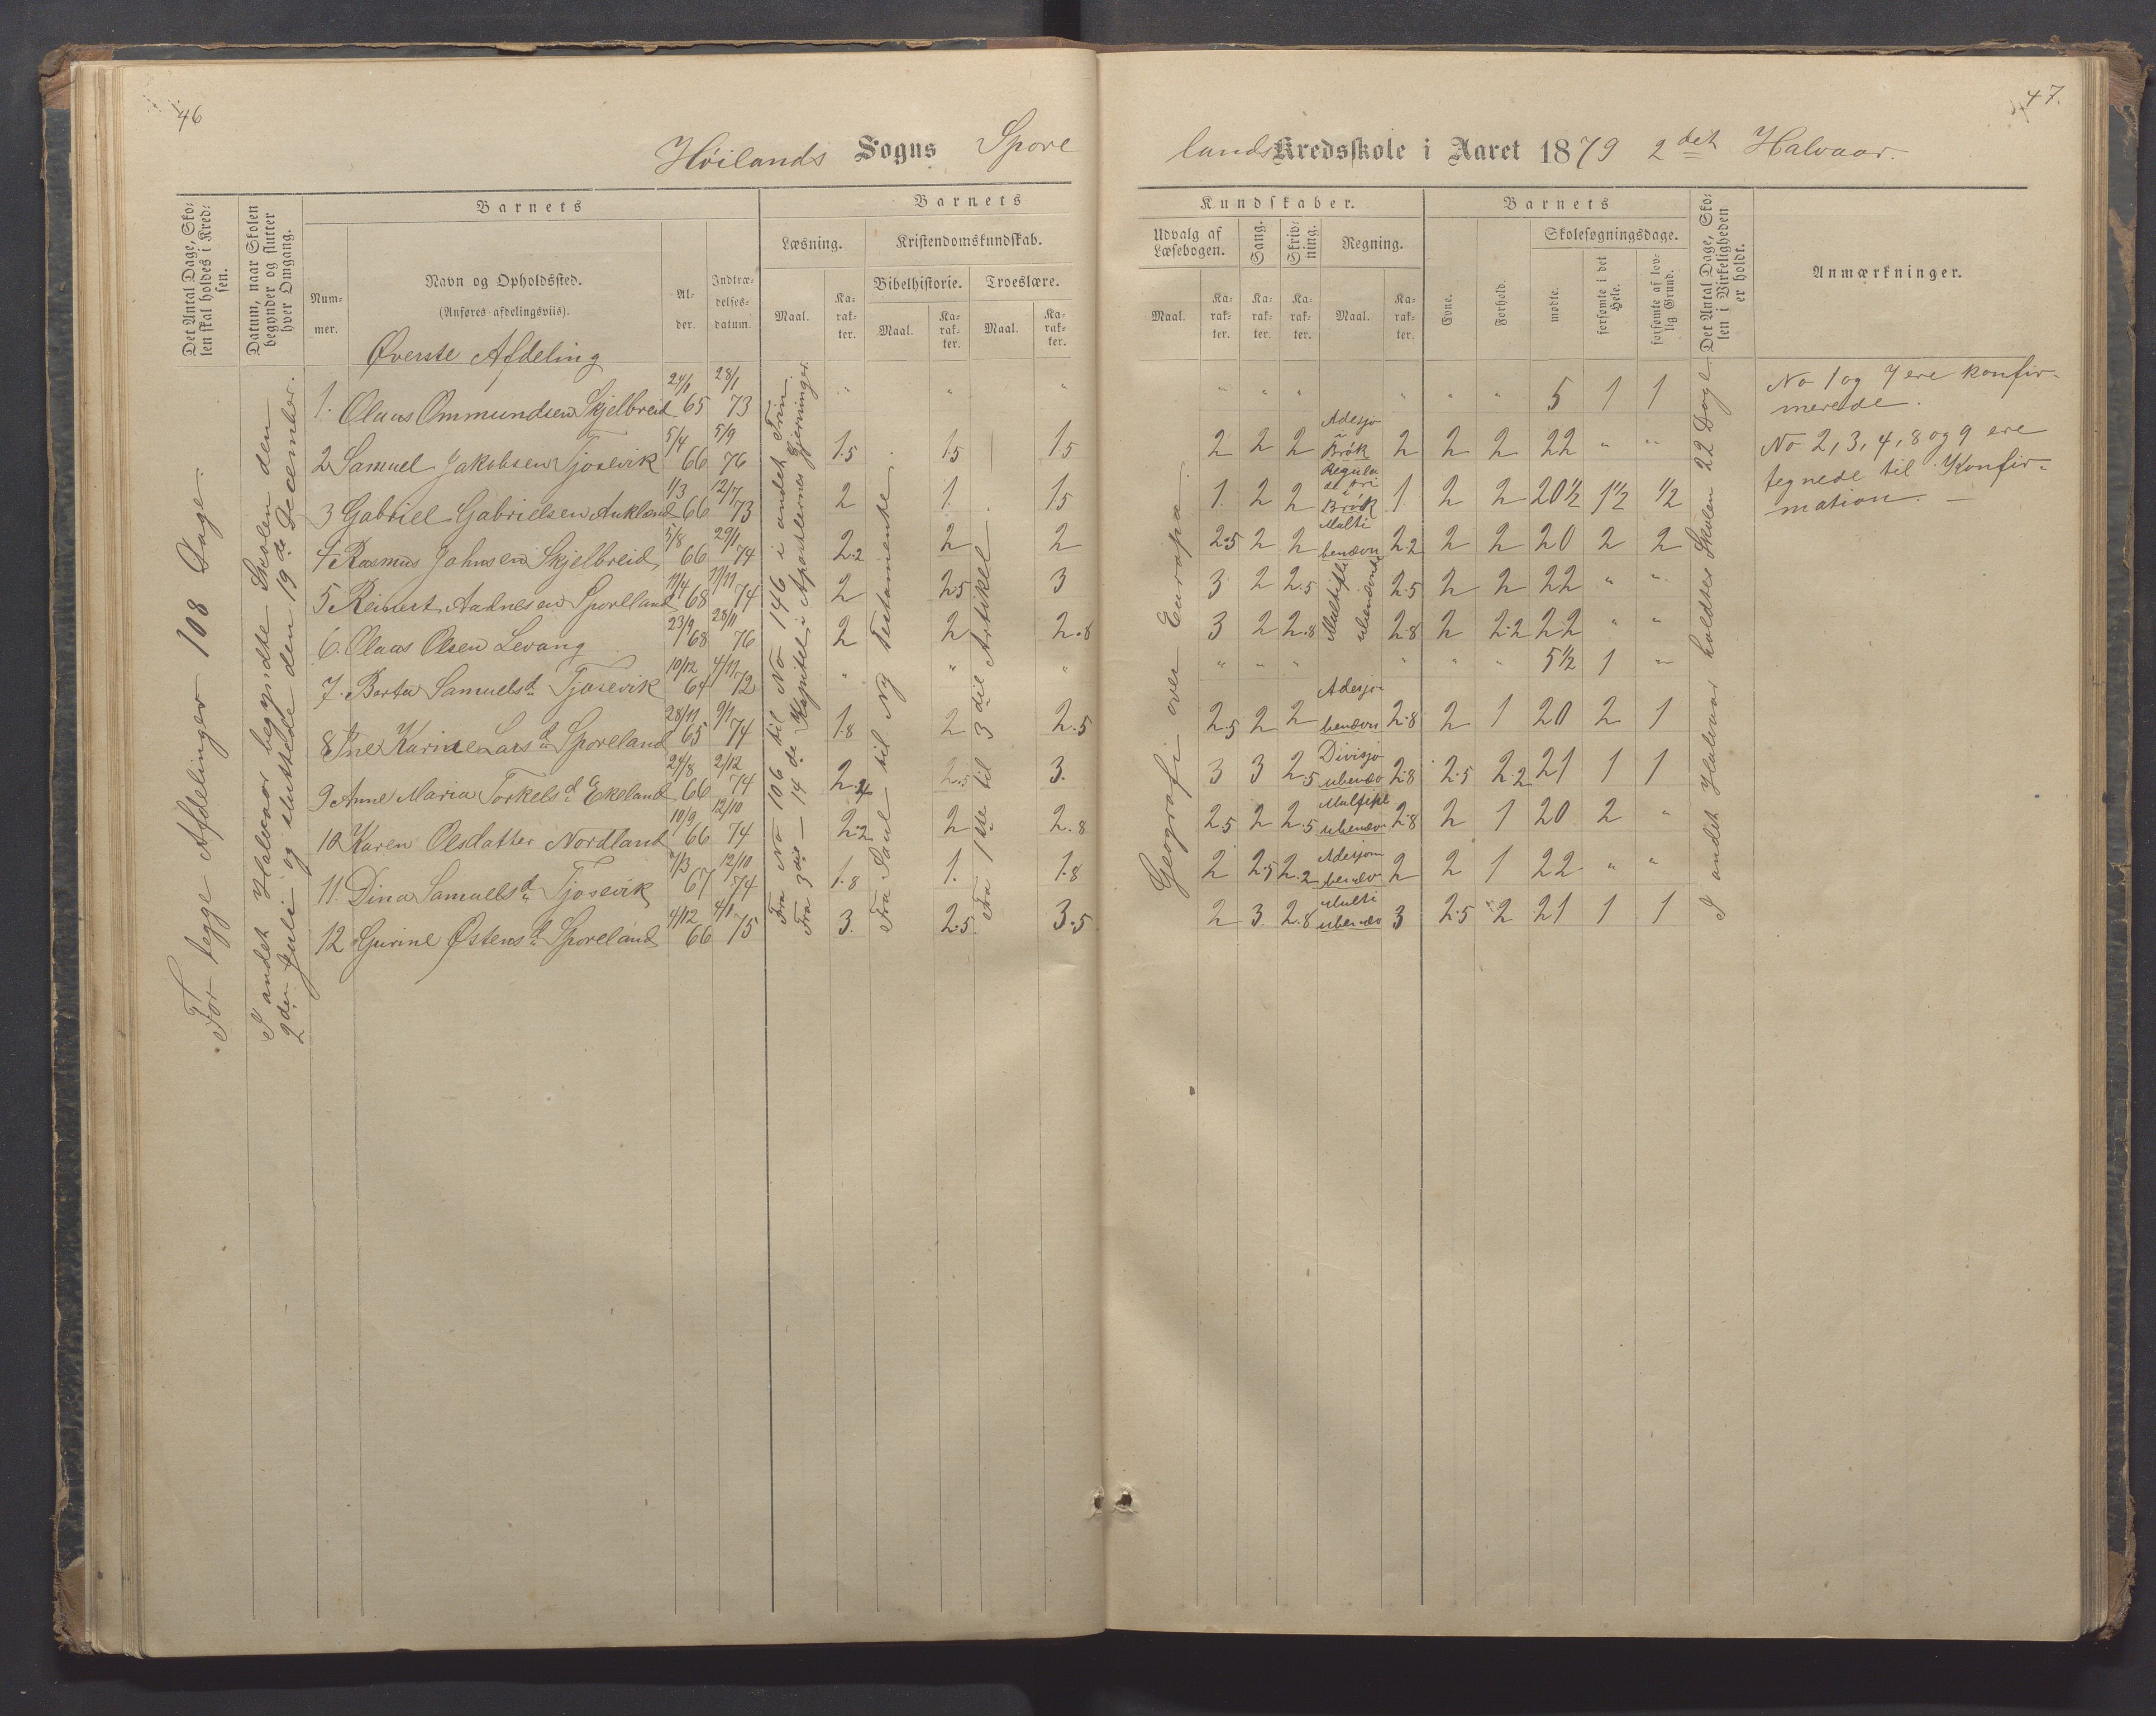 46
Höilands Sogns Spore
Det Antal Dage, Sko-
len skal holdes i Kred-
sen.
Datum, naar Skolen
begynder og slutter
hver Omgang.
Barnets
Num-
mer.
Navn og Opholdssted.
(Anføres afdelingsviis).
Al-
der.
Indtræ-
delses-
datum.
Barnets
Læsning.
Maal.
Ka-
rak-
ter.
Kristendomskundskab.
Bibelhistorie.
Maal.
Ka-
rak-
ter.
Troeslære.
Maal.
Ka-
rak-
ter.
For begge Afdelinger 108 Dage.
I andet Halvaar begyndte Skolen den
2den Juli og sluttede den 19de December.
Øverste Afdeling
1. Olaus Ommundsen Skjelbreid 24/1 65 28/1 73 " " "
2 Samuel Jakobsen Tjosevik 5/4 66 5/9 76 1.5 1.5 1.5
3 Gabriel Gabrielsen Aukland 1/3 66 12/7 73 2 1. 1.5
4 Rasmus Johnsen Skjelbreid, 5/8 66 29/1 74 2.2 2 2
5 Reinert Aadnesen Sporeland 11/4 68 11/11 74 2 2.5 3
6. Olaus Olsen Levang 23/9 68 28/11 76 2 2 2.8
7. Berta Samuelsd. Tjosevik 10/12 64 4/11 72 " " "
8 Ine Karine Larsd. Sporeland 28/11 65 9/1 74 1.8 2 2.5
9 Anne Maria Torkelsd. Ekeland 24/8 66 2/12 74 2.4 2.5 3.
10 Karen Olsdatter Nordland 10/9 66 12/10 74 2.2 2 2.8
11. Dina Samuelsd. Tjosevik 7/3 67 12/10 74 1.8 1. 1.8
12 Gurine Østensd. Sporeland 4/12 66 4/1 75 3. 2.5 3.5
Fra No 106 til No 146 i andet Trin.
Fra 3die — 14de Kapitel i Apostlernes Gjerninger.
Fra Saul til Ny Testamente.
Fra 1ste til 3die Artikel.
47.
lands Kredsskole i Aaret 1879 2det Halvaar.
Kundskaber.
Udvalg af
Læsebogen.
Maal.
Ka-
rak-
ter.
Sang.
Ka-
rak-
ter.
Skriv-
ning.
Ka-
rak-
ter.
Regning.
Maal.
Ka-
rak-
ter.
Barnets
Evne.
Forhold.
Skolesøgningsdage.
mødte.
forsømte i det
Hele.
forsømte af lov-
lig Grund.
Det Antal Dage, Sko-
len i Virkeligheden
er holdt.
Anmærkninger.
Geografi over Europa.
" " " " " " 5 1 1
2 2 2 Adesjo i Brök 2 2 2 22 " "
1. 2 2 Regula de tri i Brök 1. 2 2 20½ 1½ ½
2.5 2 2 Multi benævn 2.2 2 2 20 2 2
3 2 2.5 2.5 2 2 22 " "
3 2 2.8 2.8 2 2.2 22 " "
" " " " " " 5½ 1 "
2.5 2 2 Adesjo benævn 2.8 2 1 20 2 1
3 3 2.5 Divisjo ubenæv 2.8 2.5 2.2 21 1 1
2.5 2 2.5 ubenæv 2.8 2 1 20 2 "
2 2.5 2.2 Adesjon benæv 2 2 1 22 " "
2 3. 2.8 Multi ubenæv 3 2.5 2 21 1 1
I andet Halvaar holdtes Skolen 22 Dage
No 1 og 7 ere konfir-
merede.
No 2, 3, 4, 8 og 9 ere
tegnede til Konfir-
mation. —